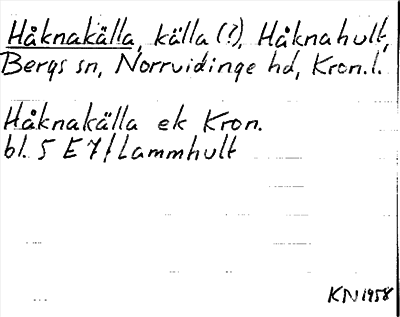 Håknakälla, källa (?), Håknahult,
Bergs sn, Norrvidinge hd, Kron.l.
Håknakälla ek Kron.
bl. 5 E 7f Lammhult
KN 1958